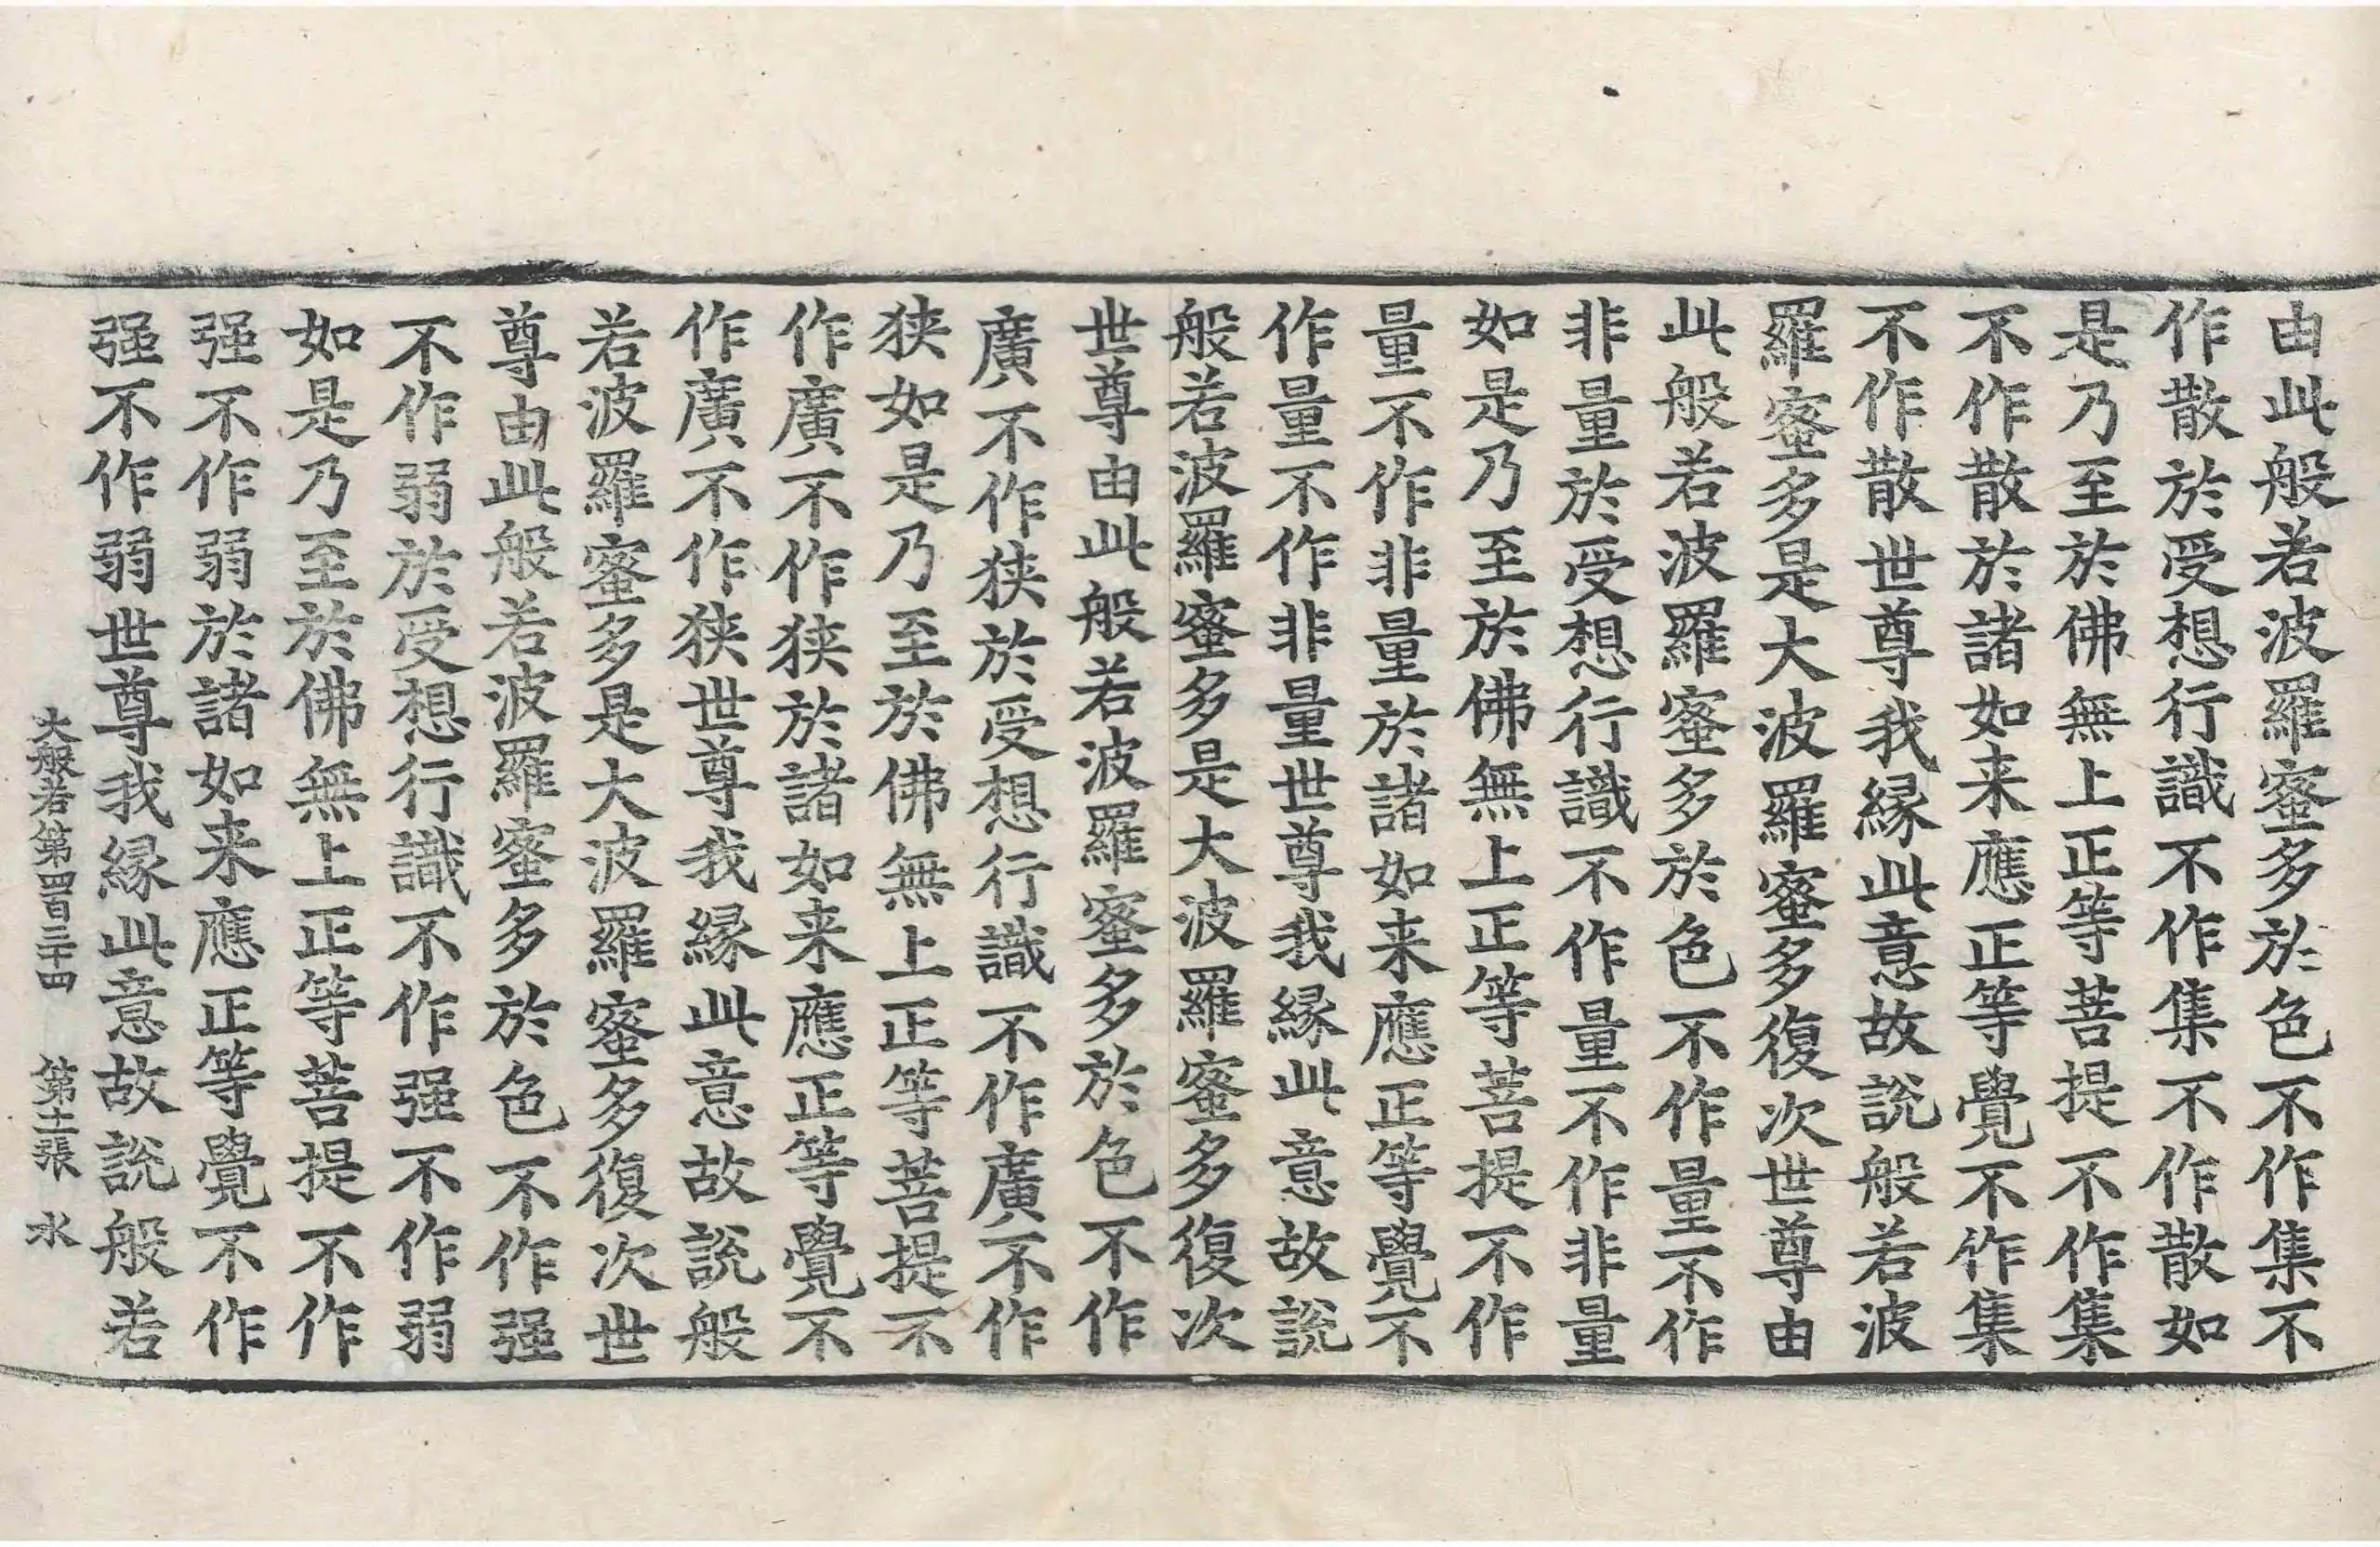 由此般若波羅蜜多於色不作集不
作散於受想行識不作集不作散如
是乃至於佛無上正等菩提不作集
不作散於諸如来應正等覺不作集
不作散世尊我縁此意故說般若波
羅蜜多是大波羅蜜多復次世尊由
此般若波羅蜜多於色不作量不作
非量於受想行識不作量不作非量
如是乃至於佛無上正等菩提不作
量不作非量於諸如来應正等覺不
作量不作非量世尊我縁此意故說
般若波羅蜜多是大波羅蜜多復次
世尊由此般若波羅蜜多於色不作
廣不作狹於受想行識不作廣不作
狹如是乃至於佛無上正等菩提不
作廣不作狹於諸如来應正等覺不
作廣不作狹世尊我縁此意故說般
若波羅蜜多是大波羅蜜多復次世
尊由此般若波羅蜜多於色不作强
不作弱於受想行識不作强不作弱
如是乃至於佛無上正等菩提不作
强不作弱於諸如来應正等覺不作
强不作弱世尊我縁此意故說般若
大般若第四百三十四 第十二張 水